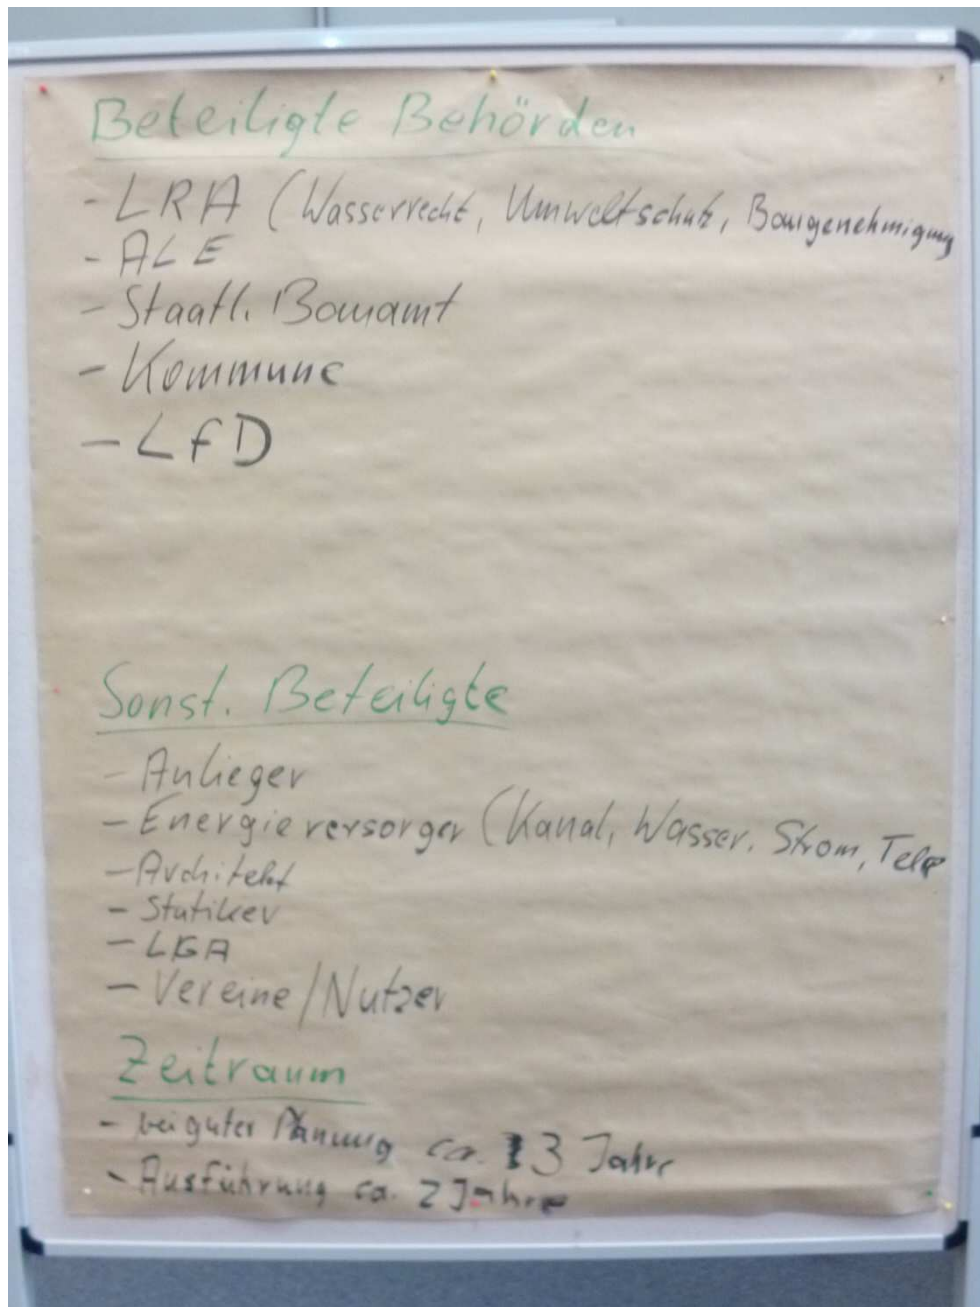 Beteiligte Behörden
- LRA (Wasserrecht, Umweltschutz, Baugenehmigung
- ALE
- Staatl. Bauamt
- Kommune
- LfD
Sonst. Beteiligte
- Anlieger
- Energieversorger (Kanal, Wasser, Strom, Tele
- Architekt
- Statiker
- LGA
- Vereine/Nutzer
Zeitraum
- bei guter Planung ca. 3 Jahre
- Ausführung ca. 2 Jahre